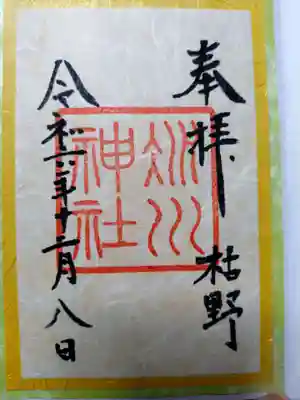 奉拝 枯野
氷川神社
令和六年十二月八日